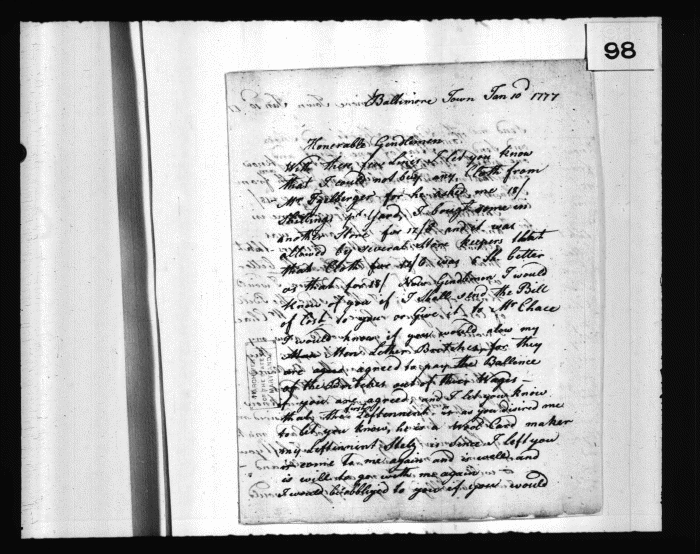 98
Baltimore Town Jan 10d 1777
Honerable Gendlemen
With these few lines I let you know
that I could not buy any Cloth from
Mr for he asked me 18/
Shilling pr Yard, I bought some in
another Store for 12/6 and it was
allowed by several Store keepers that
that Cloth for 12/6 was better
as that for 18/ Now Gendlemen I would
know of you if I shall send the Bill
of Cost to you or give it to Mr Chace
I would know if you would alow my
Men Lether Britches, for they
are agreed to pay the Ballince
of the Britches out of their Wages -
if you are agreed, and I let you know
that the as you disired me
to let you know, he is a Wool Card maker
my Leftinnint is since I left you
is come to me again and is well and
is will to go with me again
I would be obblyed to you if you would